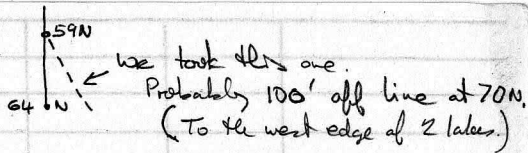 59N
we took this one.
Probably 100' off line at 70N.
64 N
(To the west edge of 2 lakes.)